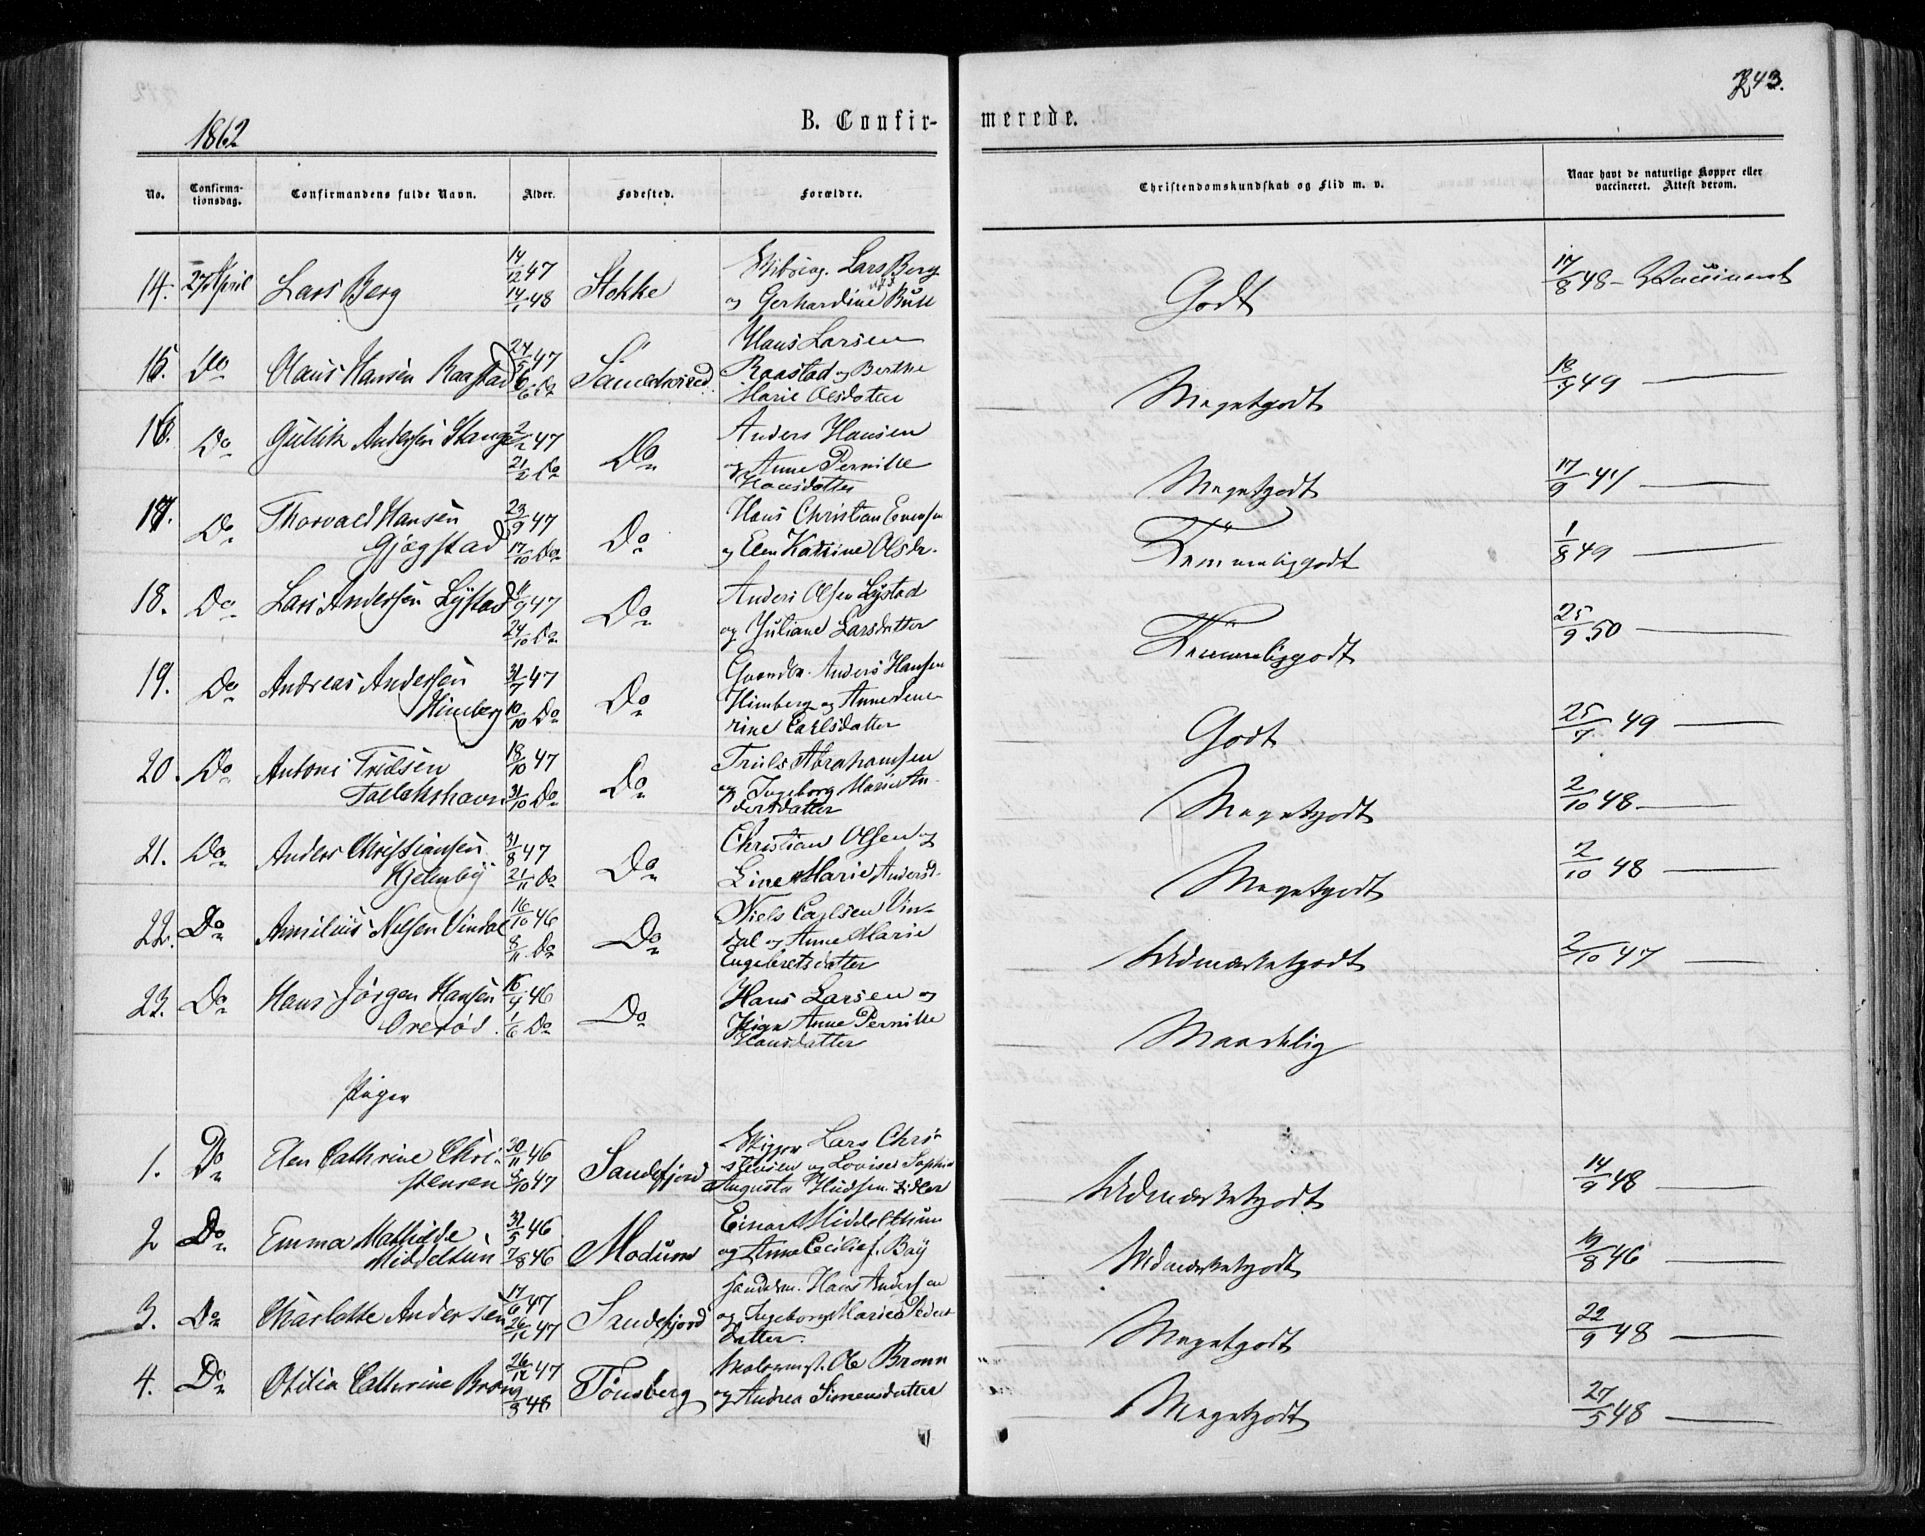 243.
1862
B. Confir-
merede.
No.
Confirma-
tionsdag.
Confirmandens fulde Navn.
Alder.
Fødested.
Forældre.
Christendomskundskab og Flid m. v.
Naar havt de naturlige Kopper eller
vaccineret. Attest derom.
14. 27 April Lars Berg 14/12 47 14/1 48 Stokke Lars Berg
og Gerhardine Bull
Godt 17/8 48 - Vaccineret
15. Do Claus Hansen Raastad 24/5 47 6/6 Do Sandeherred. Hans Larsen
Raastad og Berthe
Marie Olsdatter
Megetgodt 18/9 49
16. Do Gullik Andersen Stange 2/2 47 21/2 Do Do Anders Hansen
og Anne Pernille
Hansdatter
Megetgodt 17/9 47
17. Do Thorvald Hansen
Gjøgstad 23/9 47 17/10 Do Do Hans Christian Evensen
og Elen Katrine Olsdr.
Temmeliggodt 1/8 49
18. Do Lars Andersen Lystad 11/9 47 24/10 Do Do Anders Olsen Lystad
og Juliane Larsdatter
Temmeliggodt 25/9 50
19. Do Andreas Andersen
Himberg 31/7 47 10/10 Do Do Gaardbr. Anders Hansen
Himberg og Anne
Carlsdatter
Godt 25/7 49
20. Do Antoni Trulsen
Tallakshavn 18/10 47 31/10 Do Do Truls Abrahamsen
og Ingeborg Marie An-
dersdatter
Megetgodt 2/10 48
21. Do Anders Christiansen
Hjelmby 31/8 47 21/11 Do Do Christian Olsen og
Line Marie Andersd.
Megetgodt 2/10 48
22. Do Nilsen Vindal 16/10 46 8/11 Do Do Niels Carlsen Vin-
dal og Anne Marie
Engebretsdatter
Udmærketgodt 2/10 47
23. Do Hans Jørgen Hansen
16/4 46 1/6 Do Do Hans Larsen og
Pige Anne Pernille
Hansdatter
Maadelig
Piger
1. Do Elen Cathrine Chri-
stensen 30/11 46 5/10 47 Sandefjord Skipper Lars Chri-
stensen og Lovise Sophie
Augusta
Udmærketgodt 14/9 48
2 Do Emma Mathilde
Middelthun 31/5 46 7/8 46 Modum Einar Middelthun
og Anne Cecilie f. Bay
Udmærketgodt 19/8 46
3. Do Charlotte Andersen 17/6 47 26/12 47 Sandefjord Handelsm. Hans Andersen
og Ingeborg Marie Peders-
datter.
Megetgodt 22/9 48
4. Do Otilia Cathrine Brønn 26/12 47 48 Tønsberg Ole Brønn
og Andrea Simensdatter
Megetgodt 27/5 48